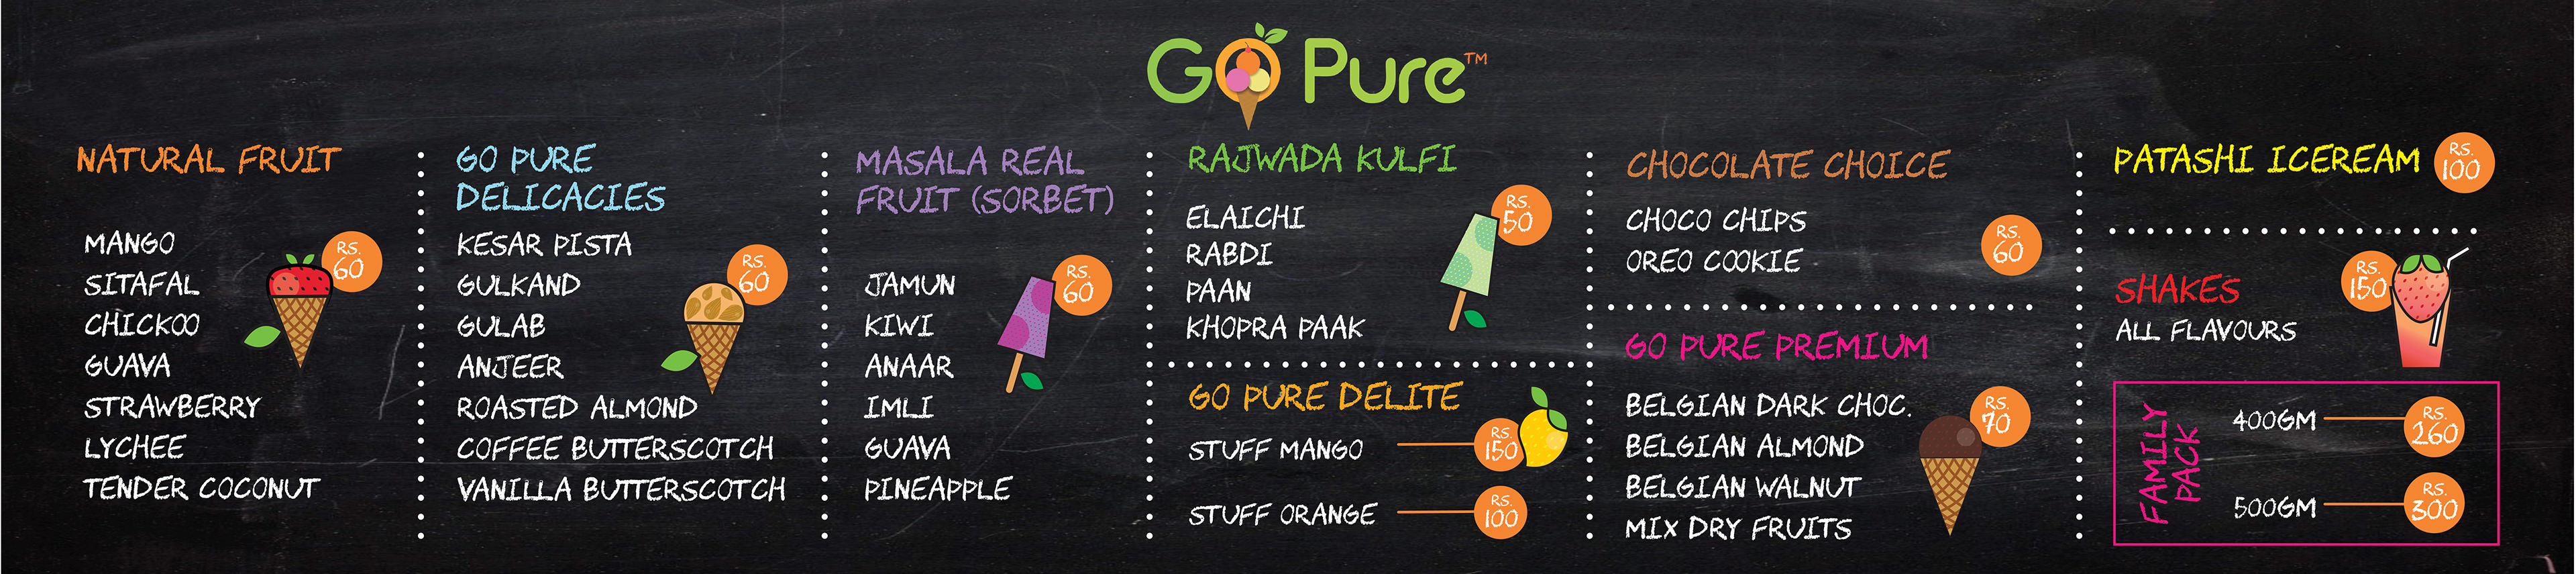 GO Pure™
NATURAL FRUIT
RS.
60
MANGO
SITAFAL
CHICKOO
GUAVA
STRAWBERRY
LYCHEE
TENDER COCONUT
GO PURE
DELICACIES
RS.
60
KESAR PISTA
GULKAND
GULAB
ANJEER
ROASTED ALMOND
COFFEE BUTTERSCOTCH
VANILLA BUTTERSCOTCH
MASALA REAL
FRUIT (SORBET)
RS.
60
JAMUN
KIWI
ANAAR
IMLI
GUAVA
PINEAPPLE
RAJWADA KULFI
RS.
50
ELAICHI
RABDI
PAAN
KHOPRA PAAK
GO PURE DELITE
STUFF MANGO
RS.
150
STUFF ORANGE
RS.
100
CHOCOLATE CHOICE
CHOCO CHIPS
OREO COOKIE
RS.
60
GO PURE PREMIUM
RS.
70
BELGIAN DARK CHOC.
BELGIAN ALMOND
BELGIAN WALNUT
MIX DRY FRUITS
PATASHI ICEREAM
RS.
100
SHAKES
ALL FLAVOURS
RS.
150
FAMILY
PACK
400GM
RS.
260
500GM
RS.
300